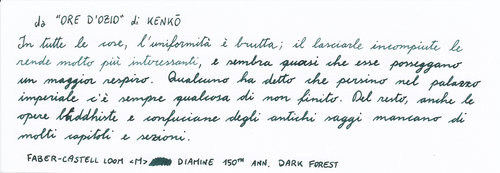 da "ORE D'OZIO" di KENKŌ
In tutte le cose, l'uniformità è brutta; il lasciarle incompiute le
rende molto più interessanti, e sembra quasi che esse posseggano
un maggior respiro. Qualcuno ha detto che persino nel palazzo
imperiale c'è sempre qualcosa di non finito. Del resto, anche le
opere buddhiste e confuciane degli antichi saggi mancano di
molti capitoli e sezioni.
FABER-CASTELL LOOM <M> DIAMINE 150TH ANN. DARK FOREST